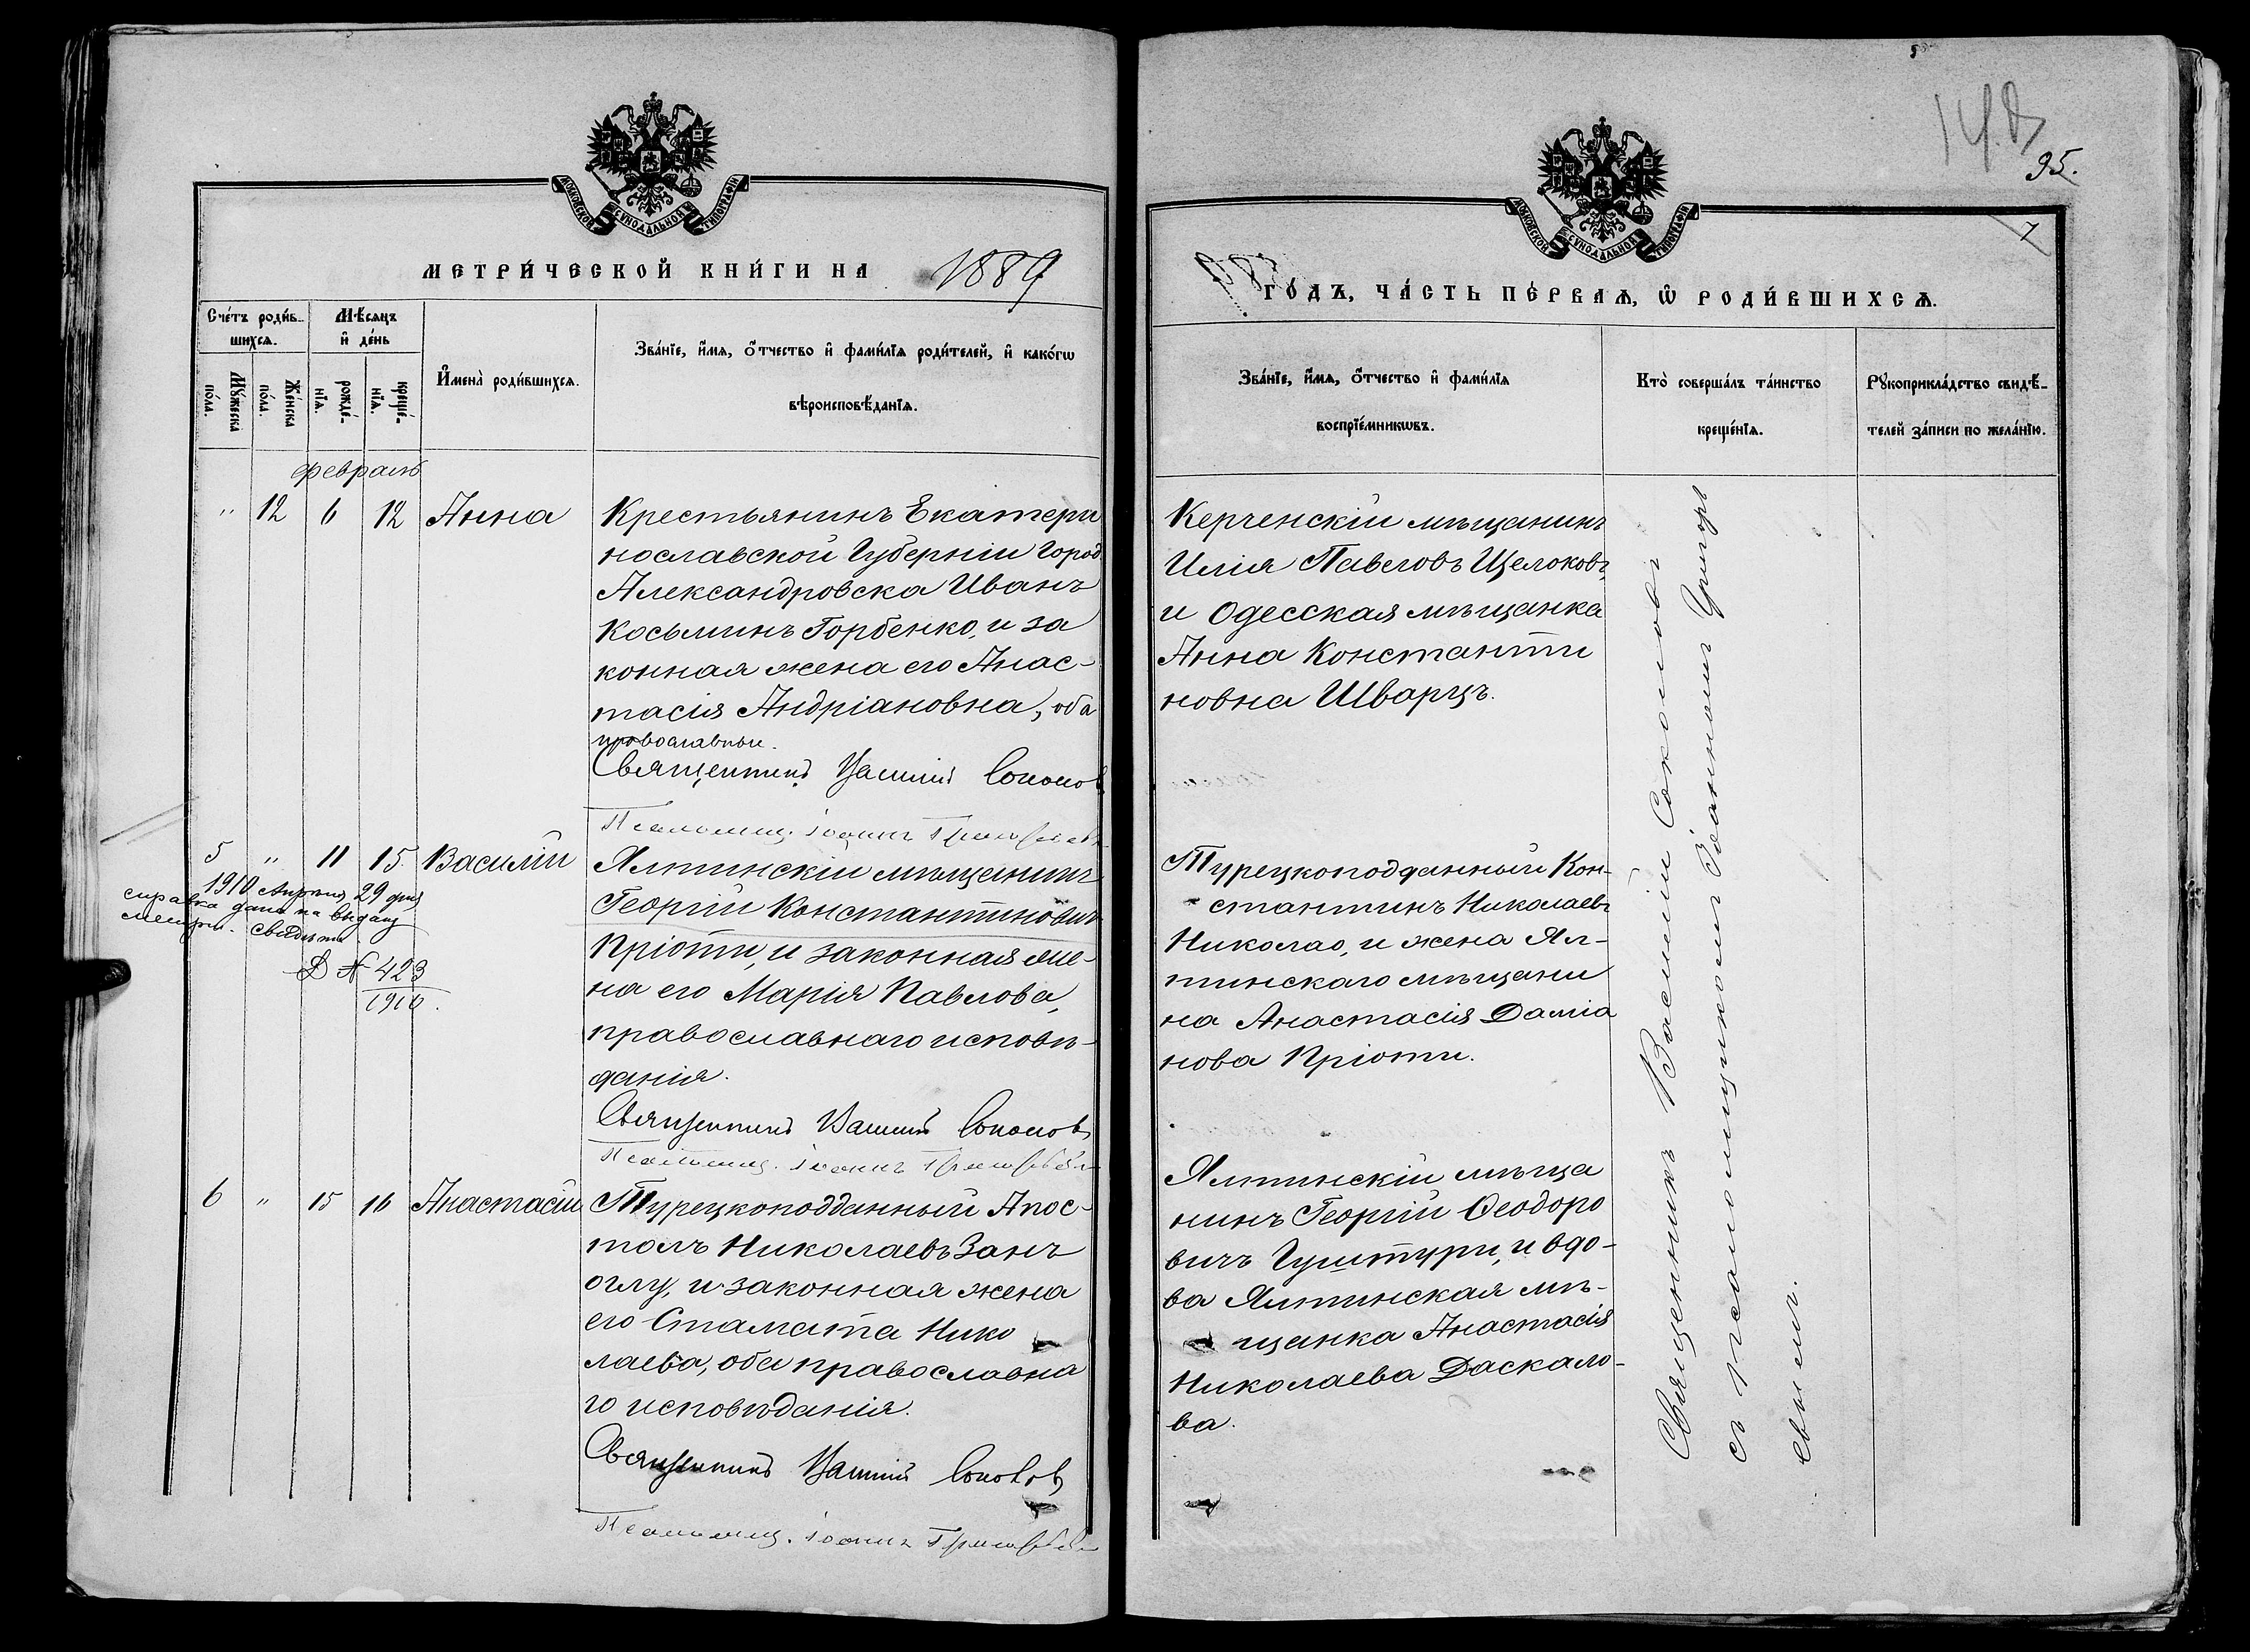 МОСКОВСКОЙ СѴНОДАЛЬНОЙ ТИПОГРАФІИ
МЕТРИ́ЧЕСКОЙ КНИ́ГИ НА 1889
Сче́тъ роди́в-
шихсѧ.
Мѣ́сѧцъ
и҆ де́нь
Мꙋ́жеска
по́ла.
Же́нска
по́ла.
рожде́-
нїѧ.
креще́-
нїѧ.
И҆мена̀ роди́вшихсѧ.
Зва́нїе, и҆́мѧ, ѻ҆́тчество и҆ фами́лїѧ роди́телей, и҆ како́гѡ
вѣроисповѣ́данїѧ.
февраль
" 12 6 12 Анна
Крестьянинъ Екатери
нославской Губерніи Город
Александровска Иванъ
Косьминъ Горбенко, и за
конная жена его Анас-
тасія Андріановна, оба
православные.
Священникъ Василій Соколов
Псаломщ. Іоаннъ Григорьевъ
5 " 11 15. Василій
1910 Апрѣля 29 дня
справка дана на выдачу
метри. свидѣт.
Д № 423
1910.
Ялтинскій мѣщанинъ
Георгій Константиновичъ
Пріоти, и законная же-
на его Марія Павлова,
православнаго исповѣ-
данія.
Священникъ Василій Соколовъ
Псаломщ. Іоаннъ Григорьевъ
6 " 15 16 Анастасій
Турецкоподданный Апос-
толъ Николаевъ Занъ
оглу, и законная жена
его Стамата Нико
лаева, оба православна
го исповѣданія.
Священникъ Василій Соколовъ
Псаломщ. Іоаннъ Григорьевъ
95.
7
МОСКОВСКОЙ СѴНОДАЛЬНОЙ ТИПОГРАФІИ
ГО́ДЪ, ЧА́СТЬ ПЕ́РВАѦ, Ѡ҆ РОДИ́ВШИХСѦ.
Зва́нїе, и҆́мѧ, ѻ҆́тчество и҆ фами́лїѧ
воспрїе́мникѡвъ.
Кто̀ соверша́лъ та́инство
креще́нїѧ.
Рꙋкоприкла́дство свидѣ́-
телей за́писи по жела́нїю.
Керченскій мѣщанинъ
Илія Павеловъ Щелоковъ,
и Одесская мѣщанка
Анна Константи
новна Шварцъ.
Турецкоподданный Кон-
стантинъ Николаевъ
Николао, и жена Ял-
тинскаго мѣщани
на Анастасія Даміа
нова Пріоти.
Ялтинскій мѣща
нинъ Георгій Ѳеодоро
вичъ Гуштури, и вдо-
ва Ялтинская мѣ-
щанка Анастасія
Николаева Даскало-
ва.
Священникъ Василій Соколовъ
съ псаломщикомъ Іоанномъ Григорь
евымъ.